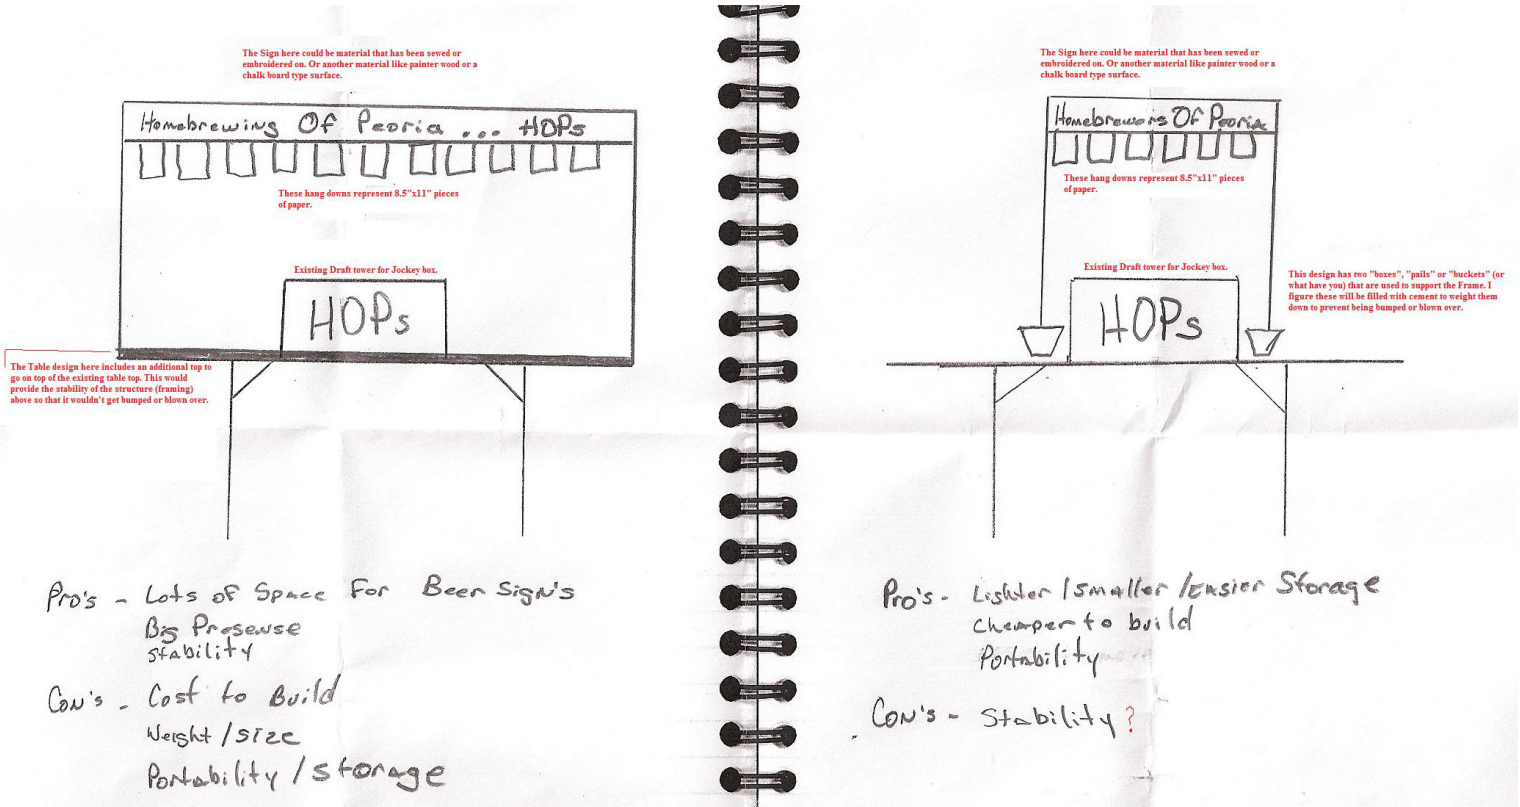 The Sign here could be material that has been sewed or
embroidered on. Or another material like painter wood or a
chalk board type surface.
Homebrewing Of Peoria ... HOPs
These hang downs represent 8.5"x11" pieces
of paper.
Existing Draft tower for Jockey box.
HOPs
The Table design here includes an additional top to
go on top of the existing table top. This would
provide the stability of the structure (framing)
above so that it wouldn't get bumped or blown over.
Pro's - Lots of Space For Beer Sign's
Big Presense
Stability
Con's - Cost to Build
Weight/size
Portability / Storage
The Sign here could be material that has been sewed or
embroidered on. Or another material like painter wood or a
chalk board type surface.
Homebrewers Of Peoria
These hang downs represent 8.5"x11" pieces
of paper.
Existing Draft tower for Jockey box.
HOPs
This design has two "boxes", "pails" or "buckets" (or
what have you) that are used to support the Frame. I
figure these will be filled with cement to weight them
down to prevent being bumped or blown over.
Pro's - Lighter /Smaller /Easier Storage
Cheaper to build
Portability
Con's - Stability?